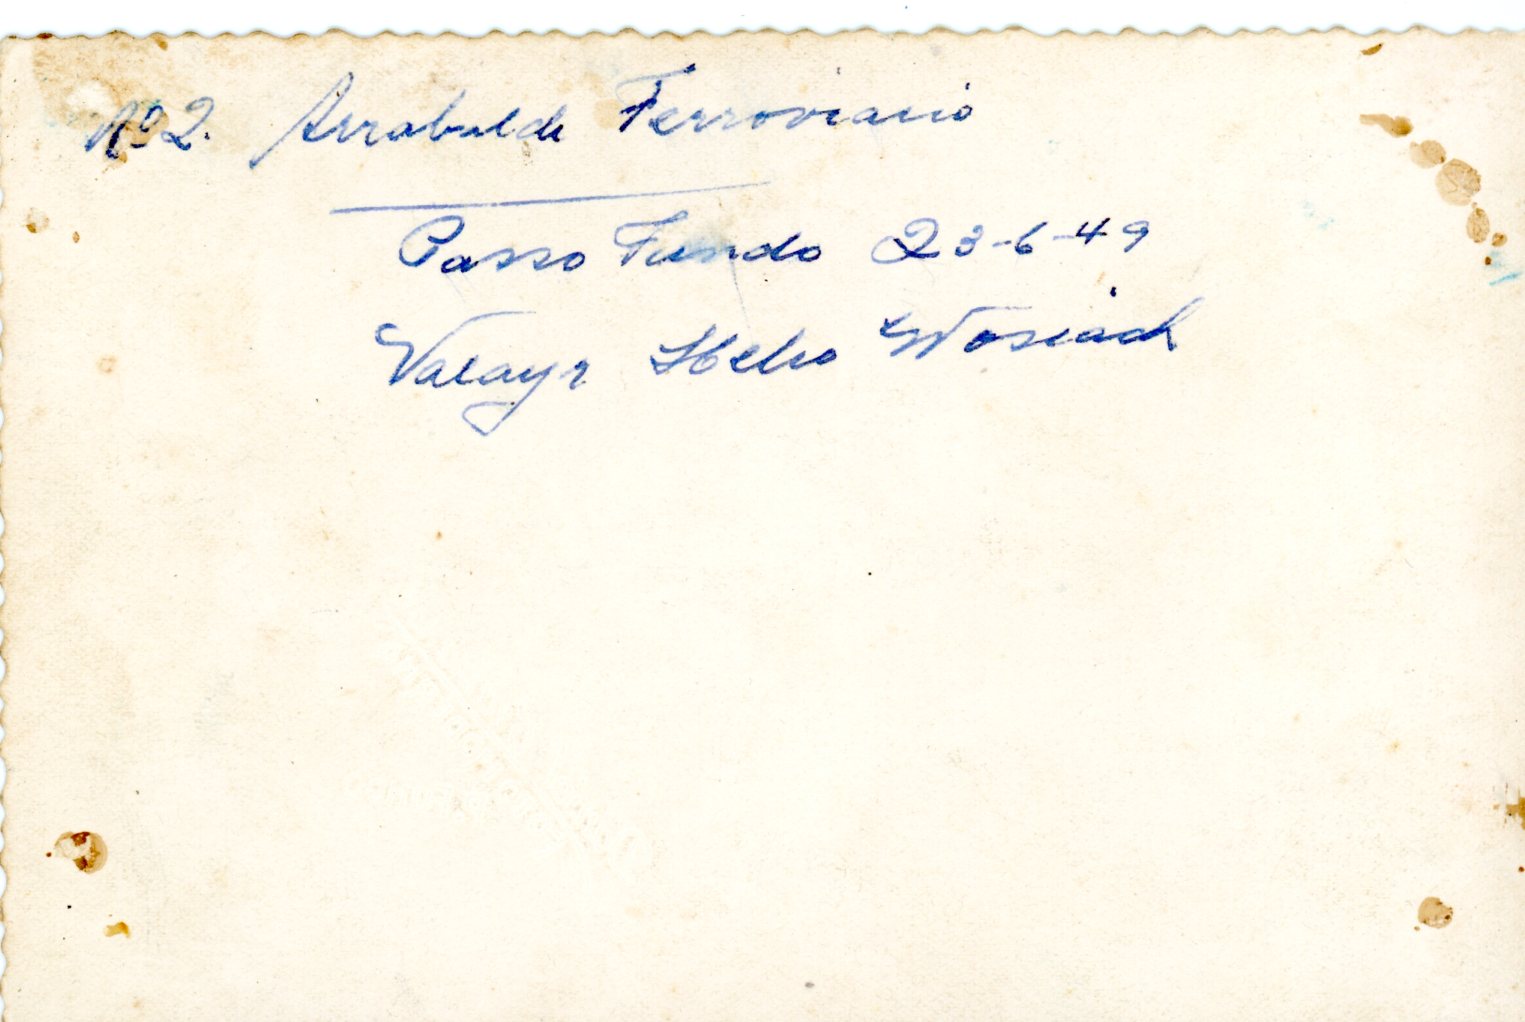 Nº 2. Arrabalde Ferroviario
Passo Fundo 23-6-49
Valayr Helio Wosiack